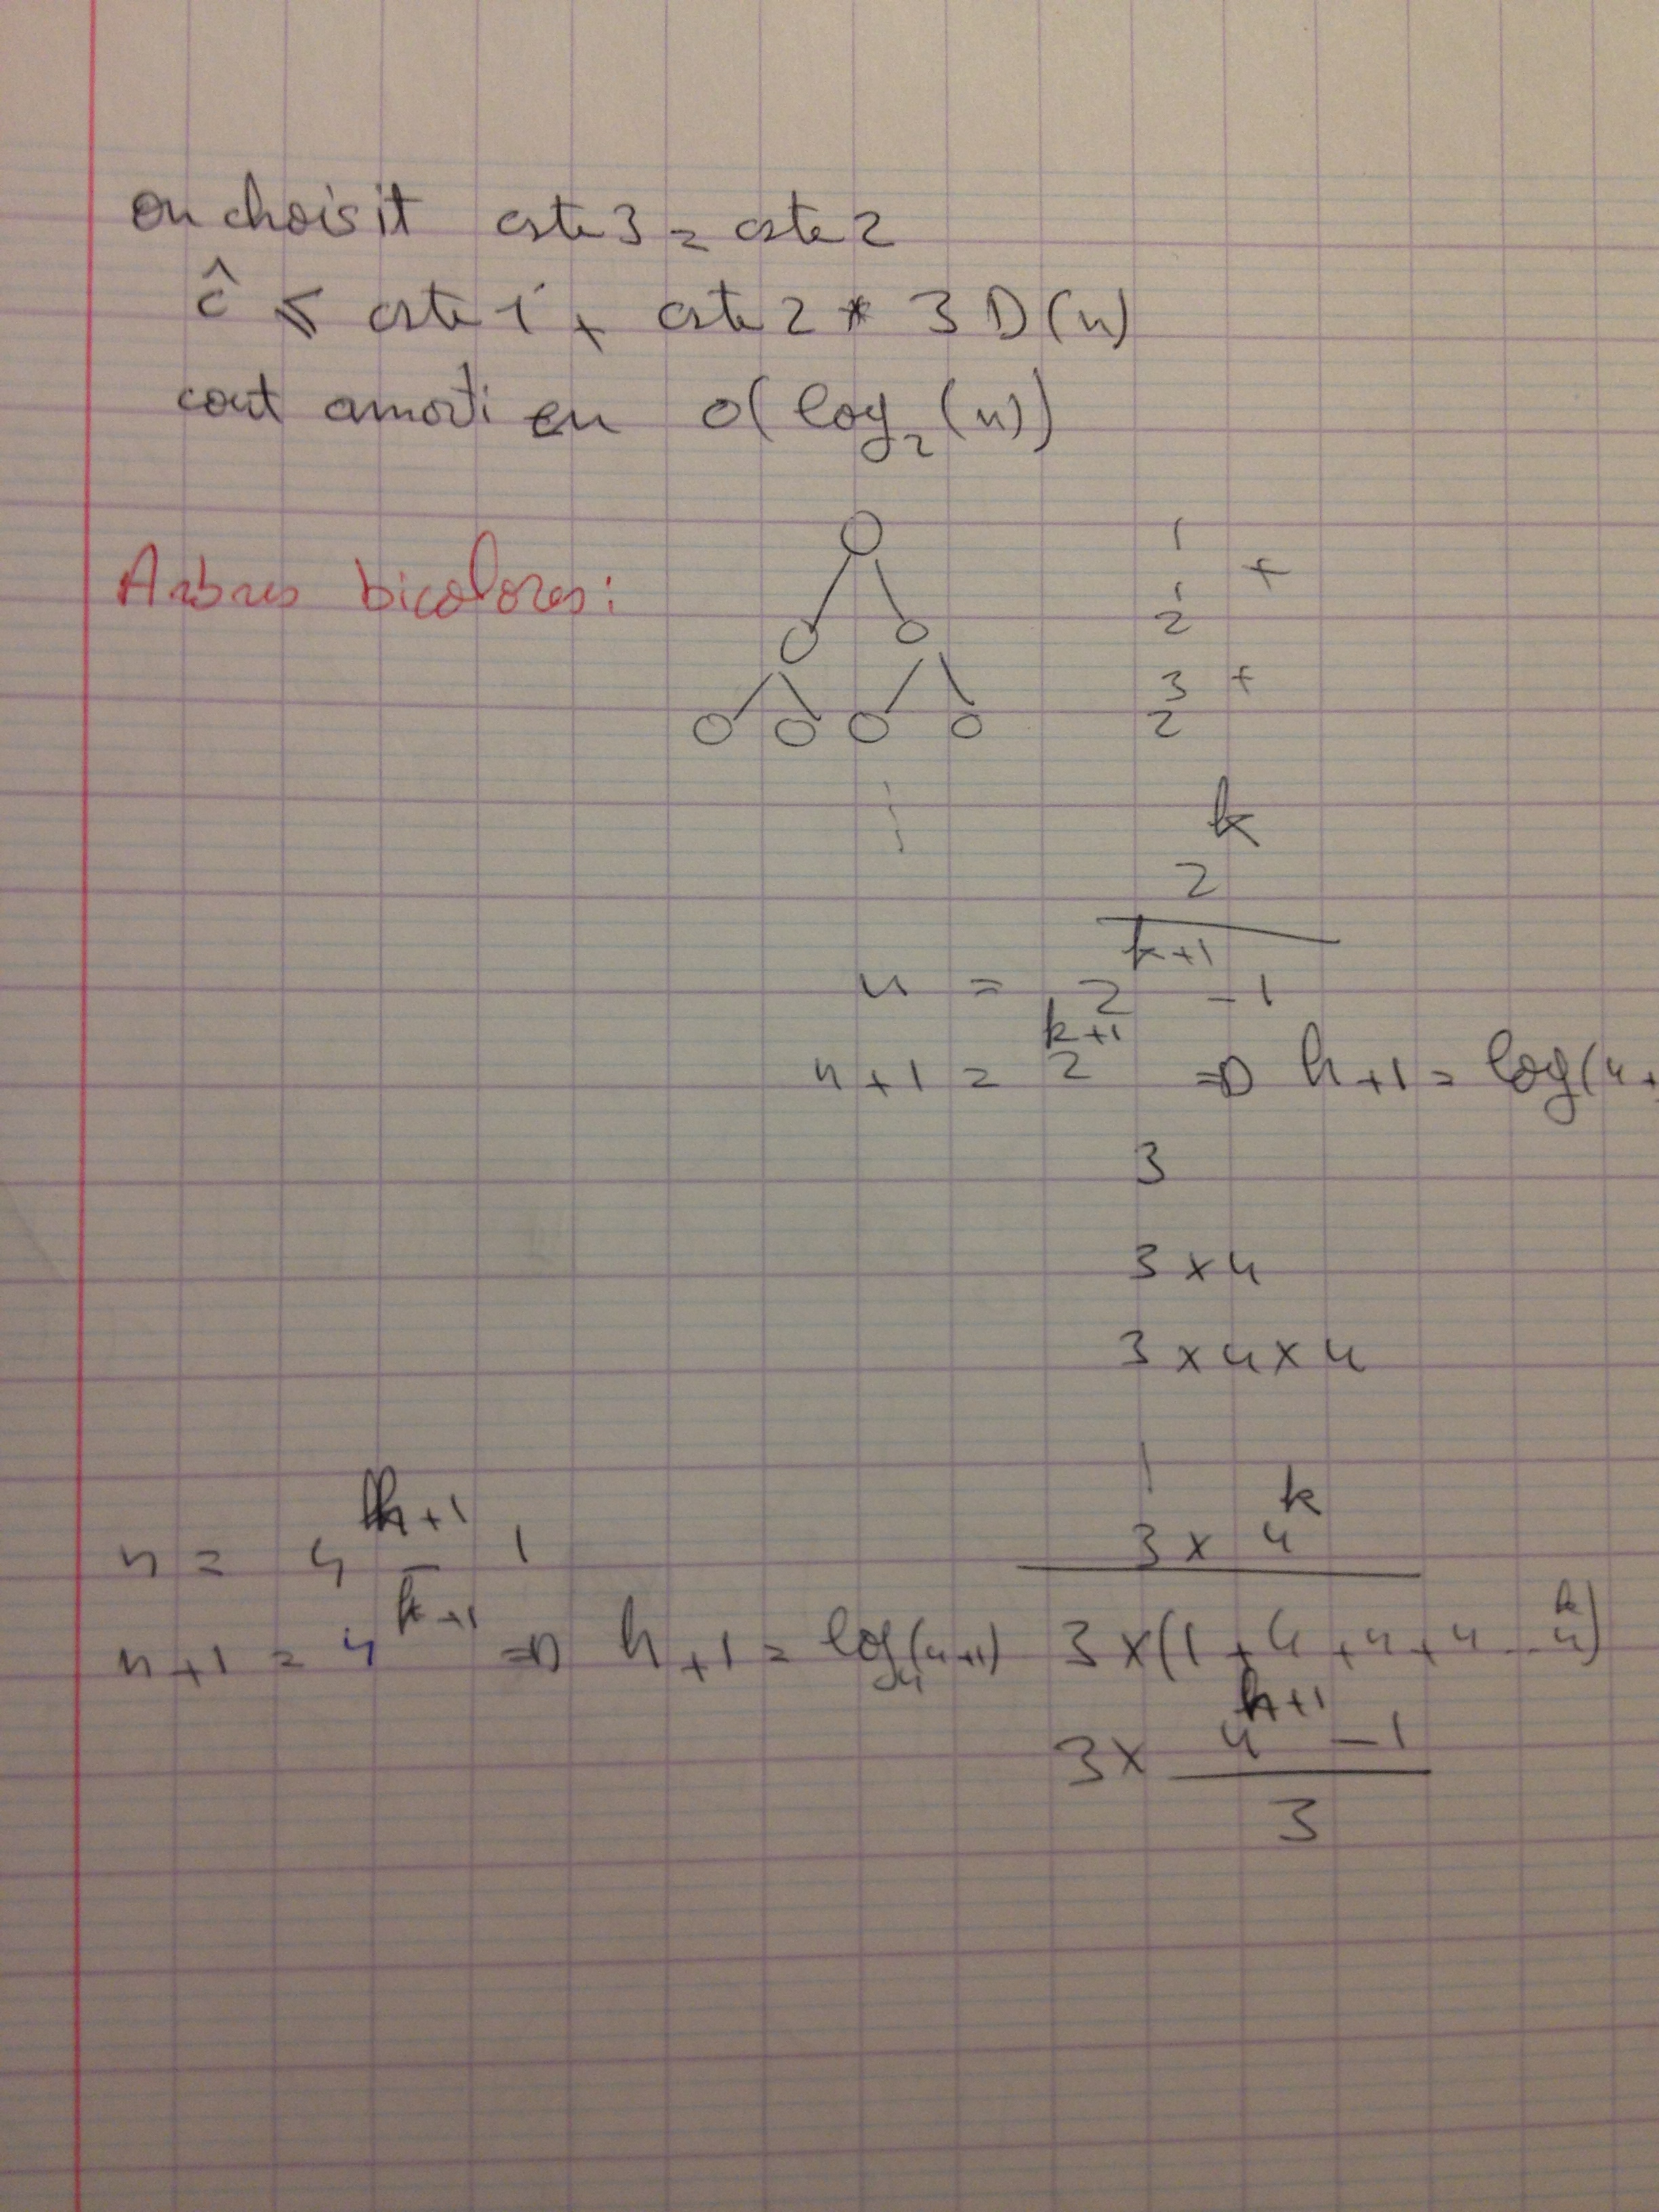 on choisit cste 3 = cste 2
ĉ ≤ cste 1 + cste 2 * 3 D(n)
cout amorti en O(log₂(n))
Arbres bicolores :
1
+
2¹
+
2³
2ᵏ
n = 2ᵏ⁺¹ - 1
n+1 = 2ᵏ⁺¹ => h+1 = log(n+
3
3 x 4
3 x 4 x 4
3 x 4ᵏ
n = 4ʰ⁺¹ - 1
n+1 = 4ᵏ⁺¹ => h+1 = log₄(n+1)
3 x (1 + 4 + 4 + 4 ... 4ᵏ)
3 x (4ʰ⁺¹ - 1) / 3